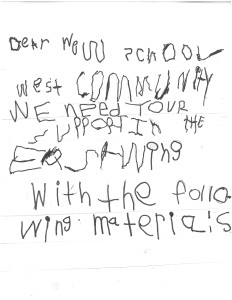 Dear new SCHOOL
west COMMUNITY
WE NEED YOUR
SUPPORT IN THE
With the follo
wing materials